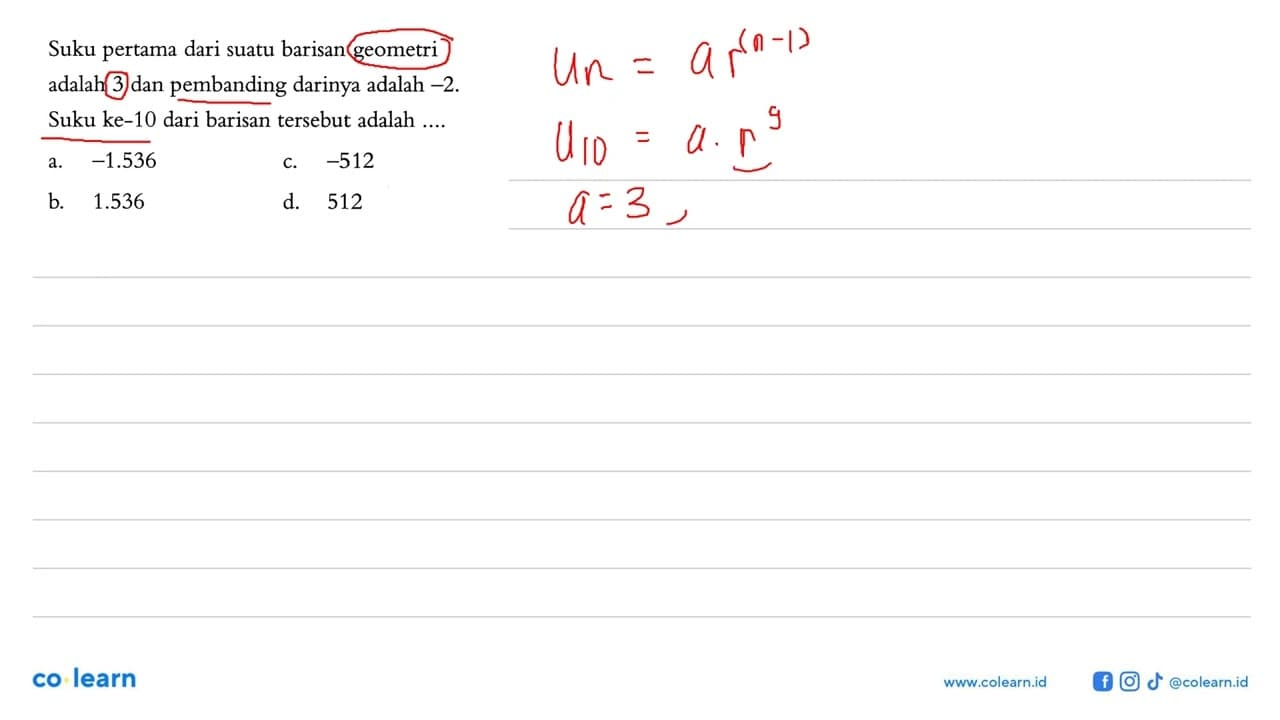 Suku pertama dari suatu barisan geometri
adalah 3 dan pembanding darinya adalah –2.
Suku ke-10 dari barisan tersebut adalah ....
a. –1.536 c. –512
b. 1.536 d. 512
Un = ar^(n-1)
U10 = a. r^9
a = 3 ,
co learn
www.colearn.id @colearn.id